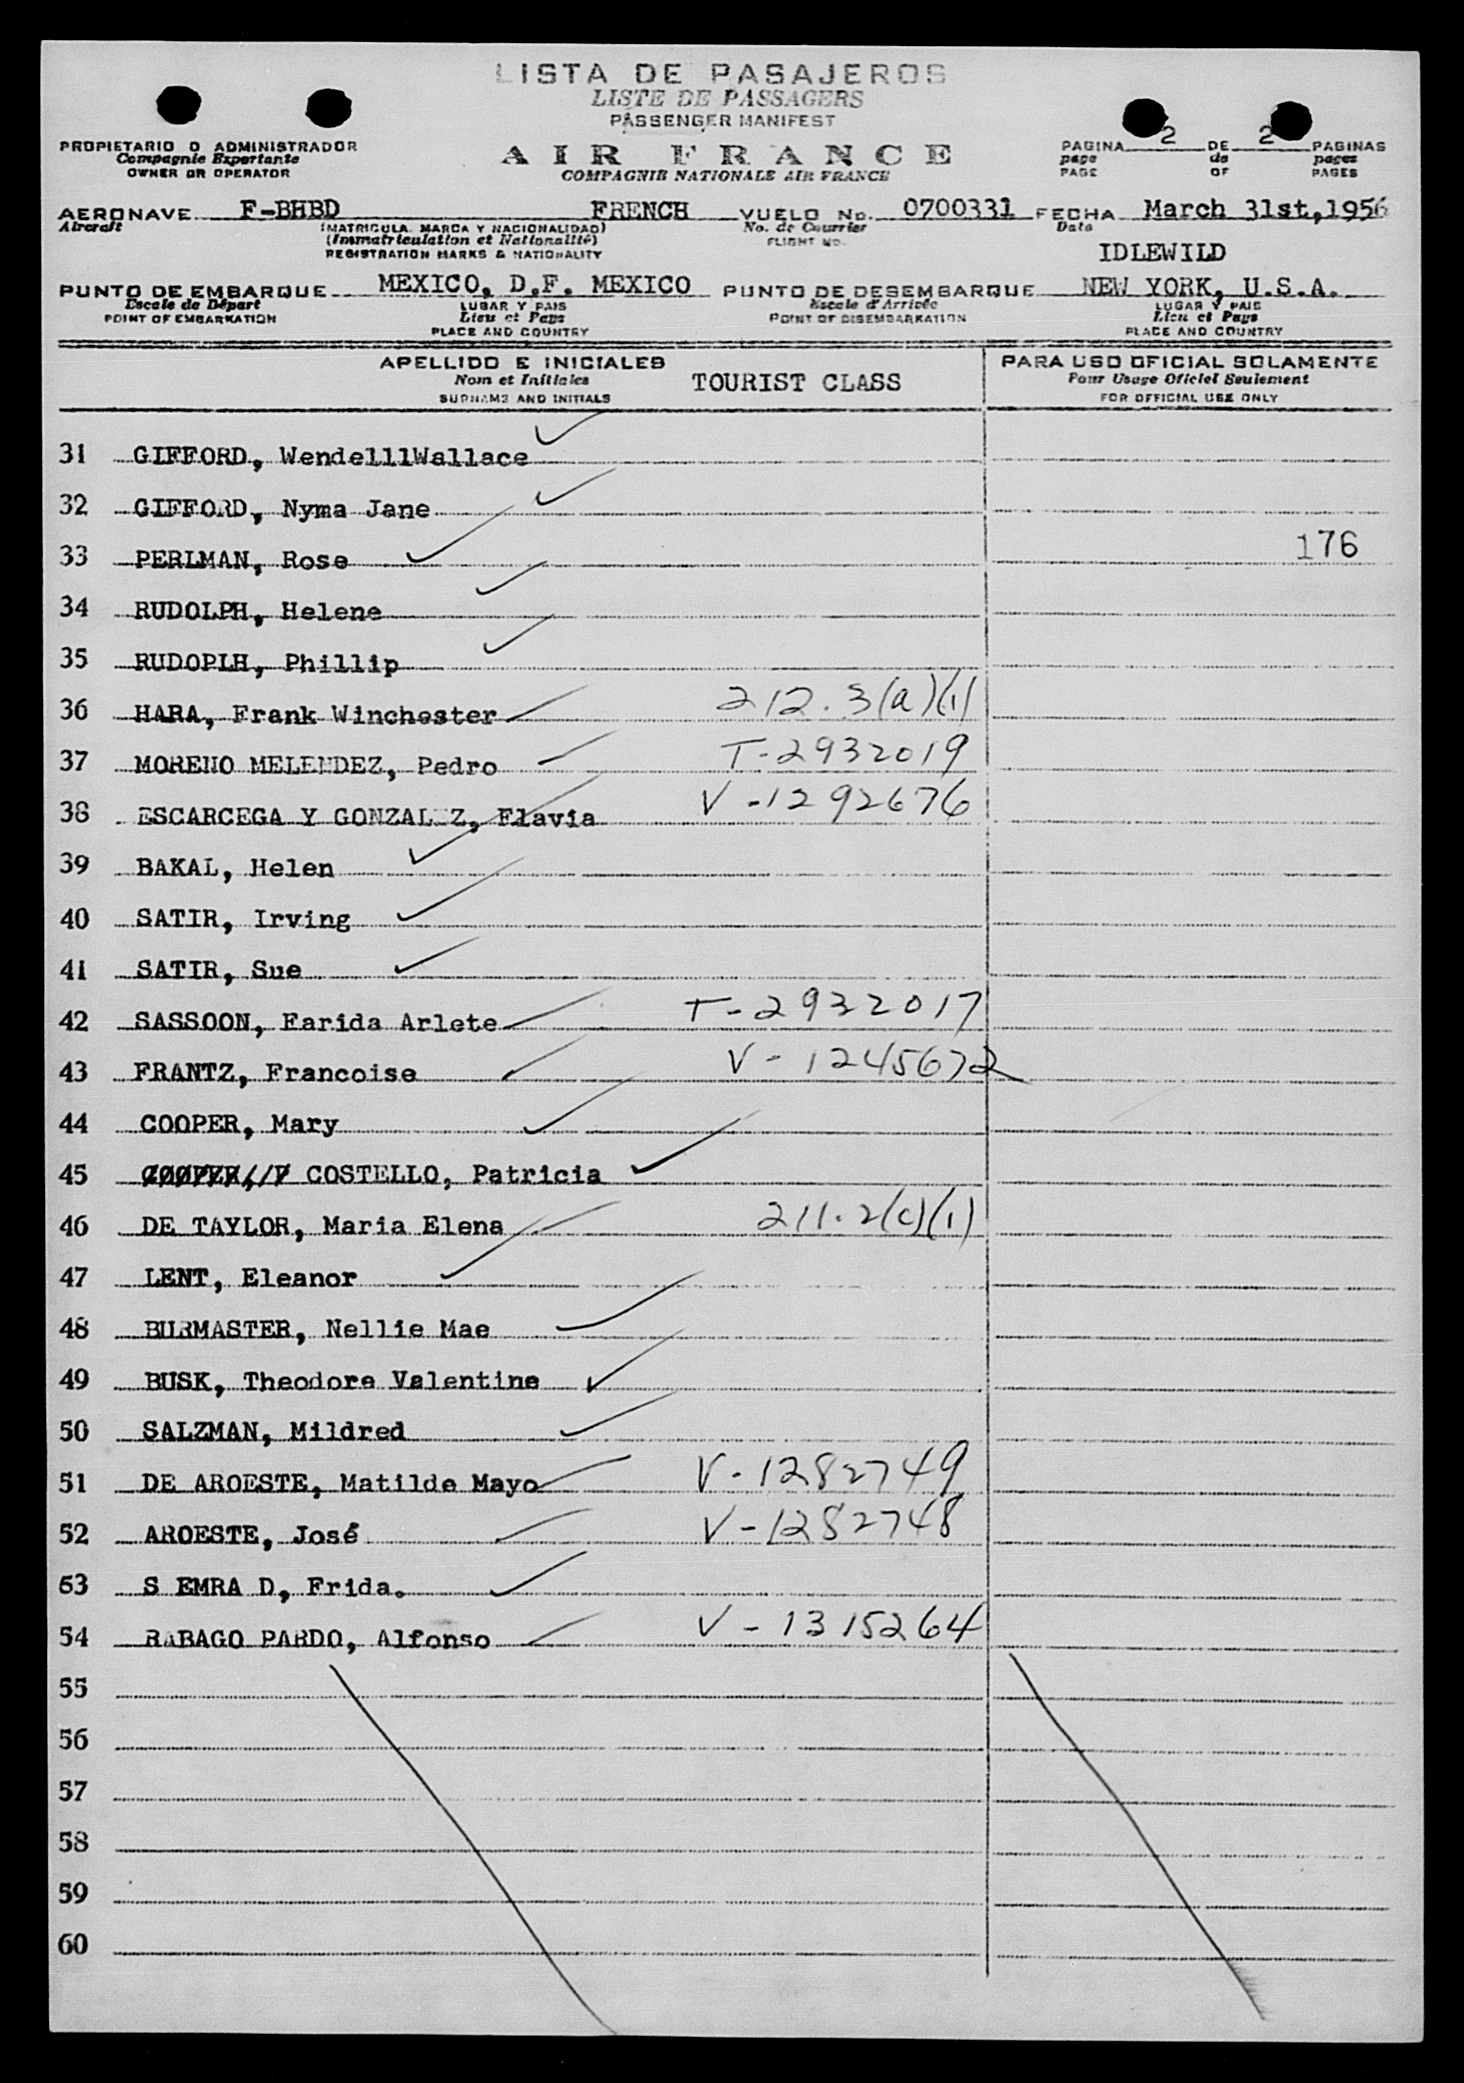 LISTA DE PASAJEROS
LISTE DE PASSAGERS
PASSENGER MANIFEST
PROPIETARIO O ADMINISTRADOR
Compagnie Exportante
OWNER OR OPERATOR
AIR FRANCE
COMPAGNIE NATIONALE AIR FRANCE
PAGINA 2 DE 2 PAGINAS
page de pages
PAGE OF PAGES
AERONAVE F-BHBD FRENCH VUELO No. 0700331 FECHA March 31st,1956
Aircraft (MATRICULA. MARCA Y NACIONALIDAD) No. de Courrier Date
(Immatriculation et Nationalité) FLIGHT NO.
REGISTRATION MARKS & NATIONALITY
IDLEWILD
PUNTO DE EMBARQUE MEXICO, D.F. MEXICO PUNTO DE DESEMBARQUE NEW YORK, U.S.A.
Escale de Départ LUGAR Y PAIS Escale d'Arrivée LUGAR Y PAIS
POINT OF EMBARKATION Lieu et Pays POINT OF DISEMBARKATION Lieu et Pays
PLACE AND COUNTRY PLACE AND COUNTRY
APELLIDO E INICIALES PARA USO OFICIAL SOLAMENTE
Nom et Initiales TOURIST CLASS Pour Usage Oficiel Seulement
SURNAME AND INITIALS FOR OFFICIAL USE ONLY
31 GIFFORD, WendelllWallace
32 GIFFORD, Nyma Jane
33 PERLMAN, Rose 176
34 RUDOLPH, Helene
35 RUDOPLH, Phillip
36 HARA, Frank Winchester 212.3(a)(1)
37 MORENO MELENDEZ, Pedro T-2932019
38 ESCARCEGA Y GONZALEZ, Flavia V-1292676
39 BAKAL, Helen
40 SATIR, Irving
41 SATIR, Sue
42 SASSOON, Farida Arlete T-2932017
43 FRANTZ, Francoise V-1245672
44 COOPER, Mary
45 COOPER, P COSTELLO, Patricia
46 DE TAYLOR, Maria Elena 211.2(c)(1)
47 LENT, Eleanor
48 BURMASTER, Nellie Mae
49 BUSK, Theodore Valentine
50 SALZMAN, Mildred
51 DE AROESTE, Matilde Mayo V-1282749
52 AROESTE, José V-1282748
53 S EMRA D, Frida.
54 RABAGO PARDO, Alfonso V-1315264
55
56
57
58
59
60